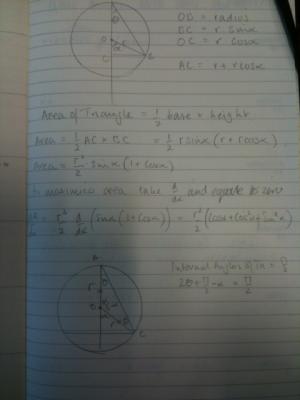 OB = radius
BC = r Sinα
OC = r cosα
AC = r + r cosα
Area of Triangle = 1/2 base × height
Area = 1/2 AC × BC = 1/2 r sinα (r + r cosα)
Area = r²/2 · Sinα (1 + Cosα)
To maximise area take d/dα and equate to zero
= r²/2 d/dα (Sinα (1 + Cosα)) = r²/2 (Cosα + Cos²α - Sin²α)
A
θ
r
O
C
Internal Angles of
2θ + π/2 - α = π/2